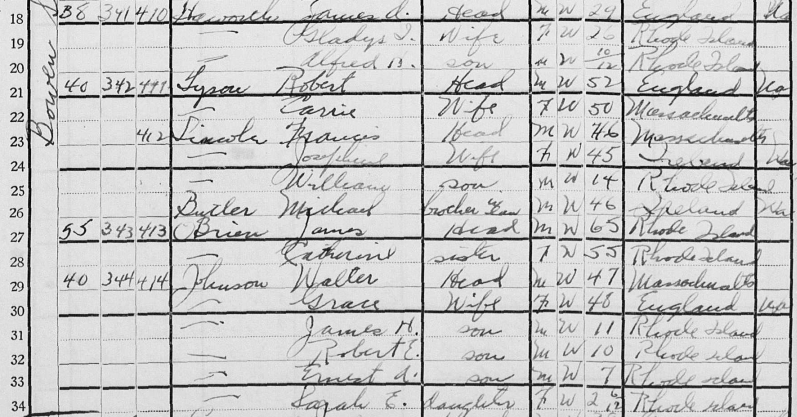 Bowen S
18 B8 341 410 Haworth James A. Head M W 29 England
19 — Gladys I. Wife F W 26 Rhode Island
20 — Alfred B. son M W 10/12 Rhode Island
21 40 342 411 Tyson Robert Head M W 52 England Na
22 — Carrie Wife F W 50 Massachusetts
23 412 Lincoln Francis Head M W 46 Massachusetts
24 — Josephine Wife F W 45 Ireland Na
25 — William son M W 14 Rhode Island
26 Butler Michael brother law M W 46 Ireland Na
27 55 343 413 OBrien James Head M W 65 Rhode Island
28 — Catherine sister F W 55 Rhode Island
29 40 344 414 Johnson Walter Head M W 47 Massachusetts
30 — Grace Wife F W 48 England
31 — James H. son M W 11 Rhode Island
32 — Robert E. son M W 10 Rhode Island
33 — Ernest A. son M W 7 Rhode Island
34 — Sarah E. daughter F W 2 Rhode Island